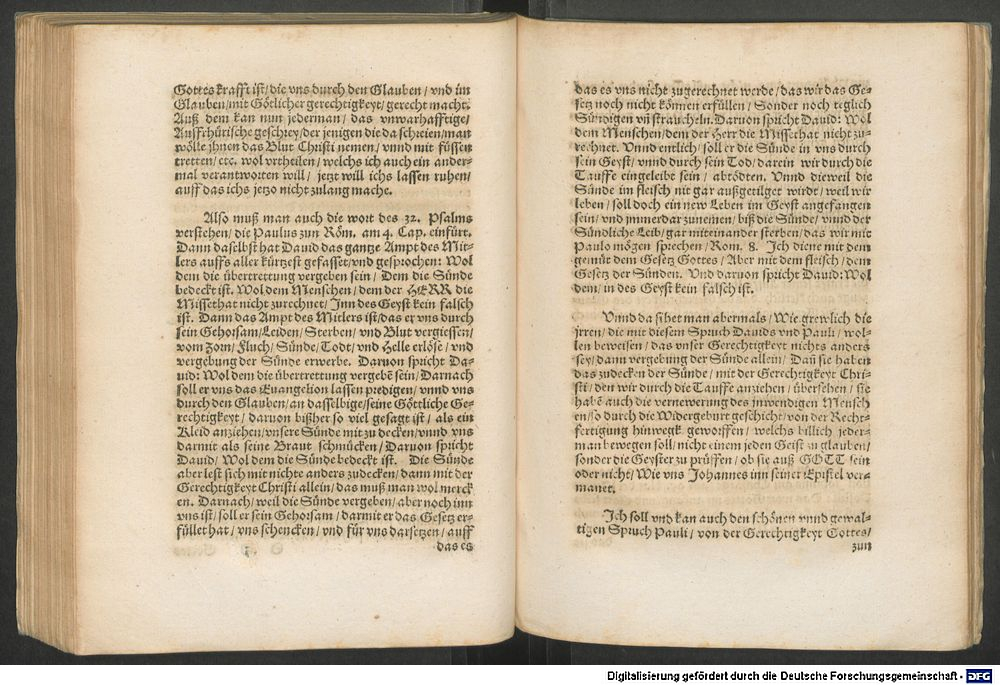 Gottes krafft ist/die vns durch den Glauben/ vnd im
Glauben/mit Götlicher gerechtigkeyt/ gerecht macht.
Auß dem kan nun jederman/ das vnwarhafftige/
Auffrhürische geschrey/der jenigen die da schreien/man
wölle jhnen das Blut Christi nemen/ vnnd mit füssen
tretten/ etc. wol vrtheilen/ welchs ich auch ein ander-
mal verantworten will/ jetzt will ichs lassen ruhen/
auff das ichs jetzo nicht zulang mache.
Also muß man auch die wort des 32. Psalms
verstehen/ die Paulus zun Röm. am 4. Cap. einfürt.
Dann daselbst hat Dauid das gantze Ampt des Mit-
lers auffs aller kürtzest gefasset/vnd gesprochen: Wol
dem die übertrettung vergeben sein/ Dem die Sünde
bedeckt ist. Wol dem Menschen/dem der HERR die
Missethat nicht zurechnet/ Inn des Geyst kein falsch
ist. Dann das Ampt des Mitlers ist/das er vns durch
sein Gehorsam/Leiden/ Sterben/ vnd Blut vergiessen/
vom Zorn/ Fluch/ Sünde/ Todt/ vnd Helle erlöse/ vnd
vergebung der Sünde erwerbe. Daruon spricht Da-
uid: Wol dem die übertrettung vergebē sein/ Darnach
soll er vns das Euangelion lassen predigen/ vnnd vns
durch den Glauben/an dasselbige/seine Göttliche Ge-
rechtigkeyt/ daruon bißher so viel gesagt ist/ als ein
Kleid anziehen/vnsere Sünde mit zu decken/vnnd vns
darmit als seine Braut schmücken/ Daruon spricht
Dauid/ Wol dem die Sünde bedeckt ist. Die Sünde
aber lest sich mit nichte anders zudecken/ dann mit der
Gerechtigkeyt Christi allein/ das muß man wol merck
en. Darnach/ weil die Sünde vergeben/ aber noch inn
vns ist/ soll er sein Gehorsam/ darmit er das Gesetz er-
füllet hat/ vns schencken/ vnd für vns darsetzen/ auff
das es
das es vns nicht zugerechnet werde/ das wir das Ge-
setz noch nicht können erfüllen/ Sonder noch teglich
Sündigen vn̄ straucheln. Daruon spricht Dauid: Wol
dem Menschen/dem der Herr die Missethat nicht zu-
rechnet. Vnnd entlich/ soll er die Sünde in vns durch
sein Geyst/ vnnd durch sein Tod/ darein wir durch die
Tauffe eingeleibt sein/ abtödten. Vnnd dieweil die
Sünde im fleisch nit gar außgetilget wirdt/ weil wir
leben/ soll doch ein new Leben im Geyst angefangen
sein/ vnd jmmerdar zunemen/ biß die Sünde/ vnnd der
Sündliche Leib/ gar miteinander sterben/das wir mit
Paulo mögen sprechen/ Rom. 8. Ich diene mit dem
gemüt dem Gesetz Gottes/ Aber mit dem fleisch/ dem
Gesetz der Sünden. Vnd daruon spricht Dauid: Wol
dem/ in des Geyst kein falsch ist.
Vnnd da sihet man abermals/ Wie grewlich die
jrren/ die mit diesem Spruch Dauids vnd Pauli/ wol-
len beweisen/ das vnser Gerechtigkeyt nichts anders
sey/ dann vergebung der Sünde allein/ Dan̄ sie haben
das zudecken der Sünde/ mit der Gerechtigkeyt Chri-
sti/ den wir durch die Tauffe anziehen/ übersehen/ sie
habē auch die vernewerung des jnwendigen Mensch
en/so durch die Widergeburt geschicht/ von der Recht-
fertigung hinwegk geworffen/ welchs billich jeder-
man bewegen soll/ nicht einem jeden Geist zu glauben/
sonder die Geyster zu prüffen/ ob sie auß GOTT sein
oder nicht/ Wie vns Johannes inn seiner Epistel ver-
manet.
Ich soll vnd kan auch den schönen vnnd gewal-
tigen Spruch Pauli/ von der Gerechtigkeyt Gottes/
zun
Digitalisierung gefördert durch die Deutsche Forschungsgemeinschaft - DFG